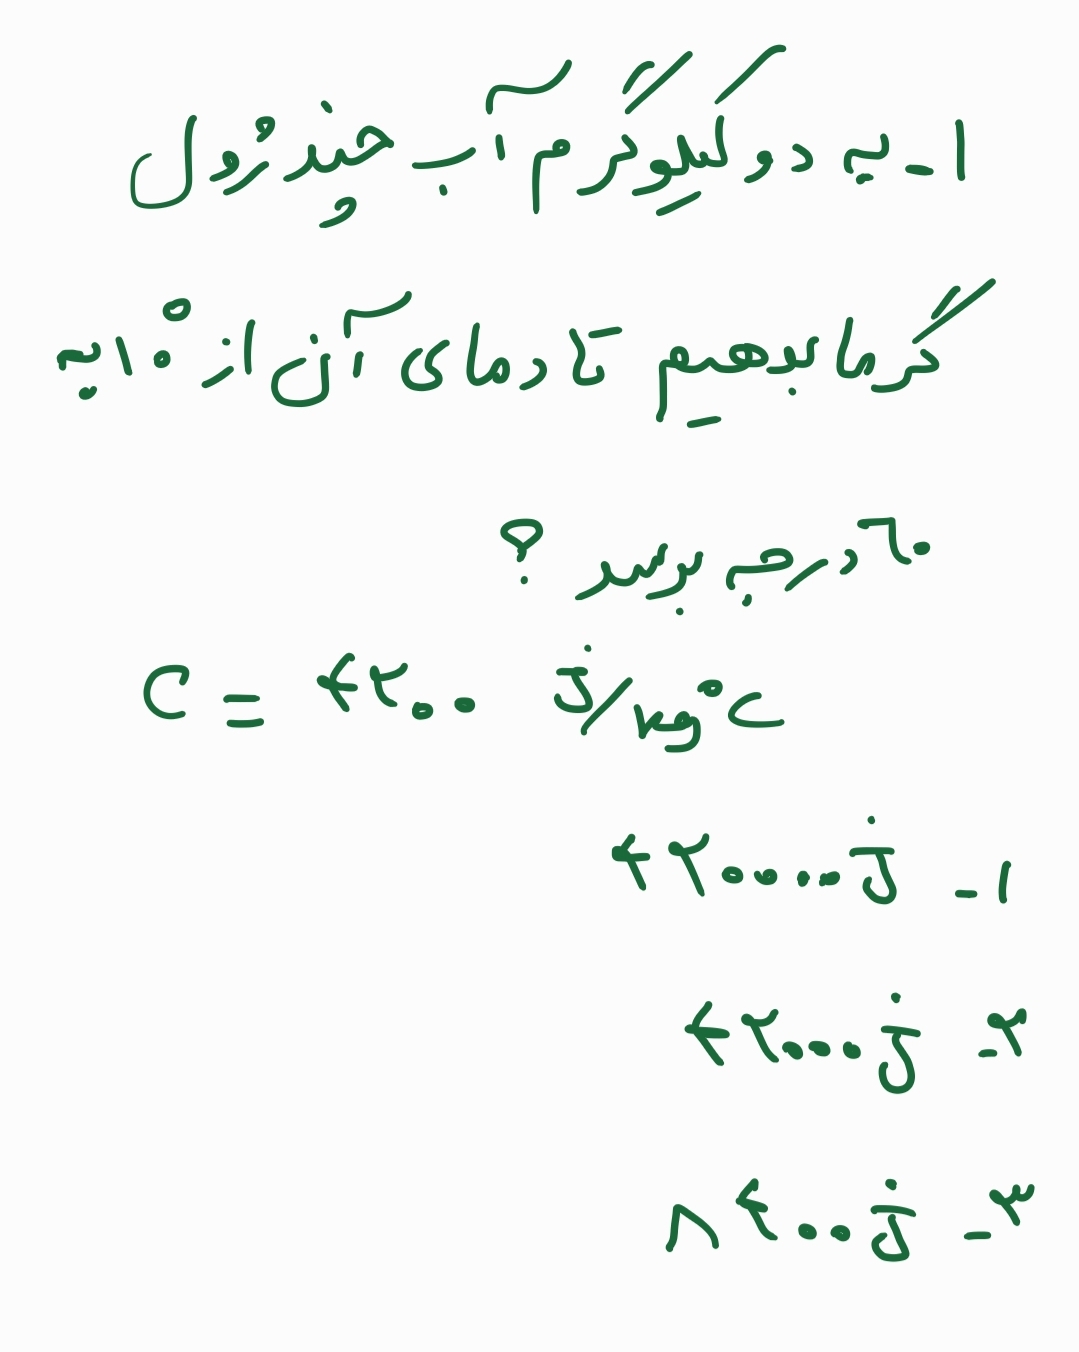 ۱- به دو کیلوگرم آب چند ژول
گرما بدهیم تا دمای آن از ۱۰ به
۶۰ درجه برسد ؟
C = ۴۲۰۰ J/kg°C
۱- ۴۲۰۰۰۰ J
۲- ۴۲۰۰۰ J
۳- ۸۴۰۰ J